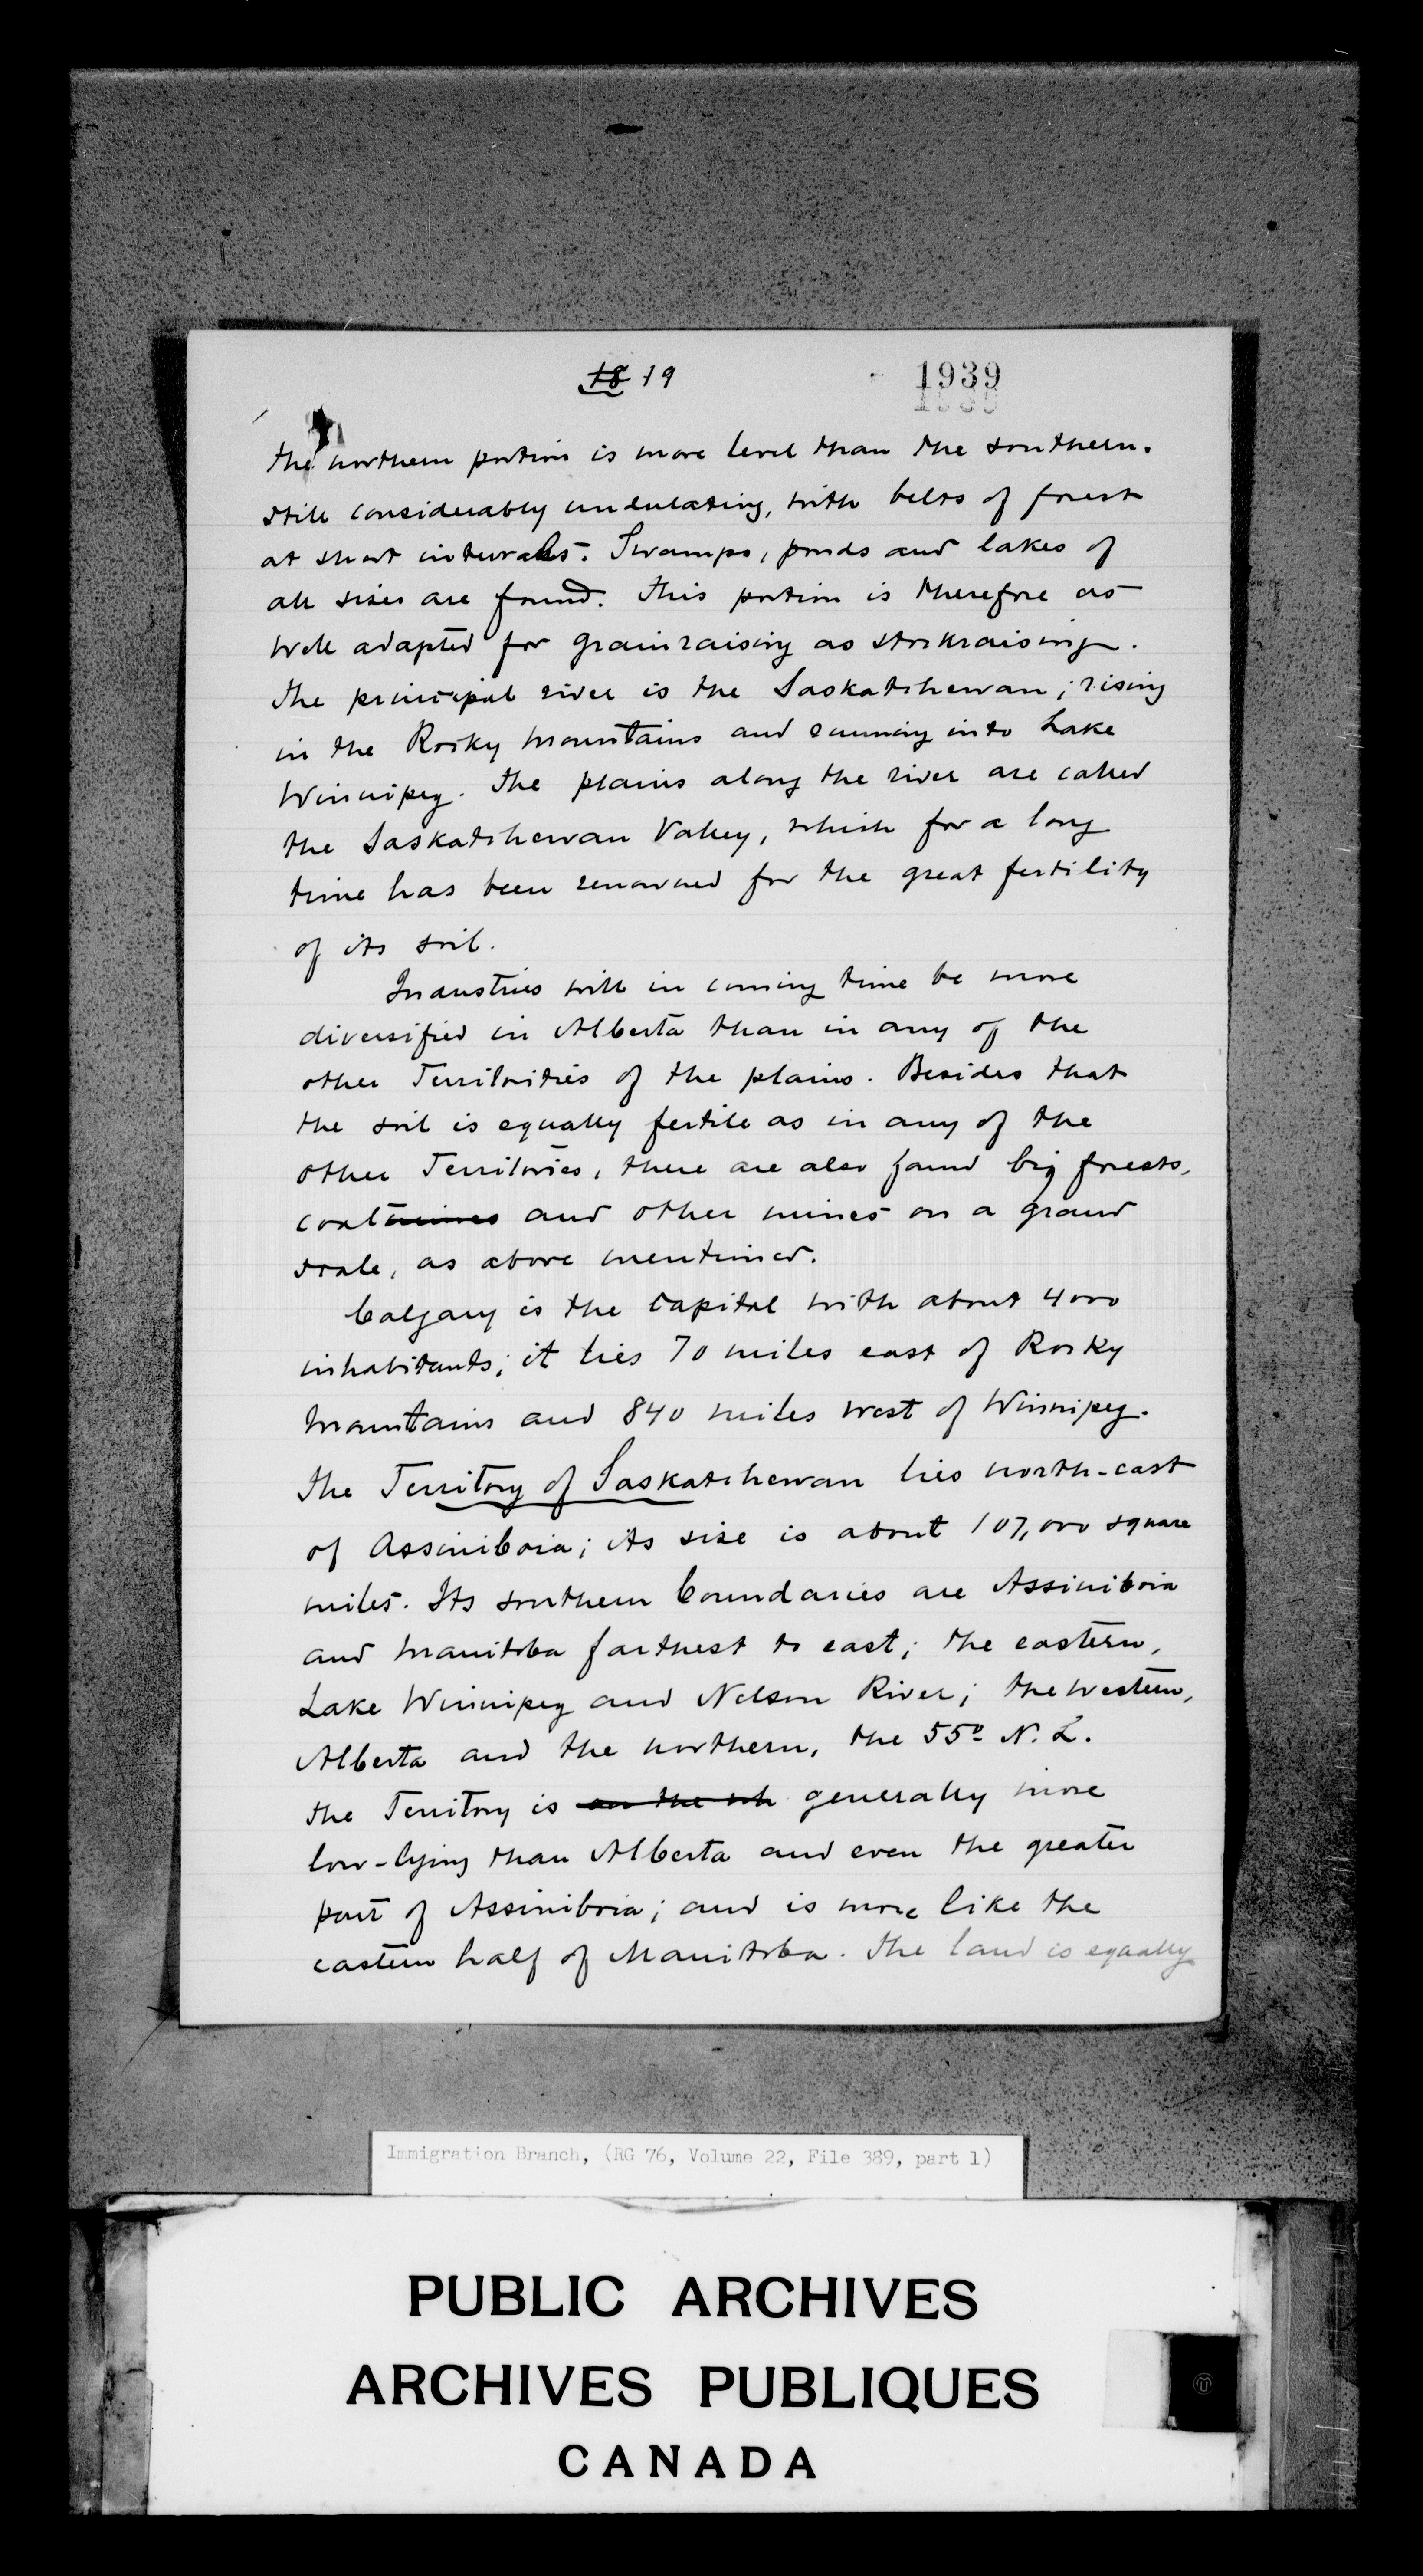 18 19
1939
the northern portion is more level than the southern.
still considerably undulating, with belts of forest
at short intervals. Swamps, ponds and lakes of
all sizes are found. This portion is therefore as
well adapted for grainraising as stockraising.
The principal river is the Saskatchewan; rising
in the Rocky Mountains and running into Lake
Winnipeg. The plains along the river are called
the Saskatchewan Valley, which for a long
time has been renowned for the great fertility
of its soil.
Industries will in coming time be more
diversified in Alberta than in any of the
other Territories of the plains. Besides that
the soil is equally fertile as in any of the
other Territories, there are also found big forests,
coalmines and other mines on a grand
scale, as above mentioned.
Calgary is the Capital with about 4000
inhabitants; it lies 70 miles east of Rocky
Mountains and 840 miles west of Winnipeg.
The Territory of Saskatchewan lies north-east
of Assiniboia; its size is about 107,000 square
miles. Its southern boundaries are Assiniboia
and Manitoba farthest to east; the eastern,
Lake Winnipeg and Nelson River; the western,
Alberta and the northern, the 55º N. L.
The Territory is on the wh generally more
low-lying than Alberta and even the greater
part of Assiniboia; and is more like the
eastern half of Manitoba. The land is equally
Immigration Branch, (RG 76, Volume 22, File 389, part 1)
PUBLIC ARCHIVES
ARCHIVES PUBLIQUES
CANADA